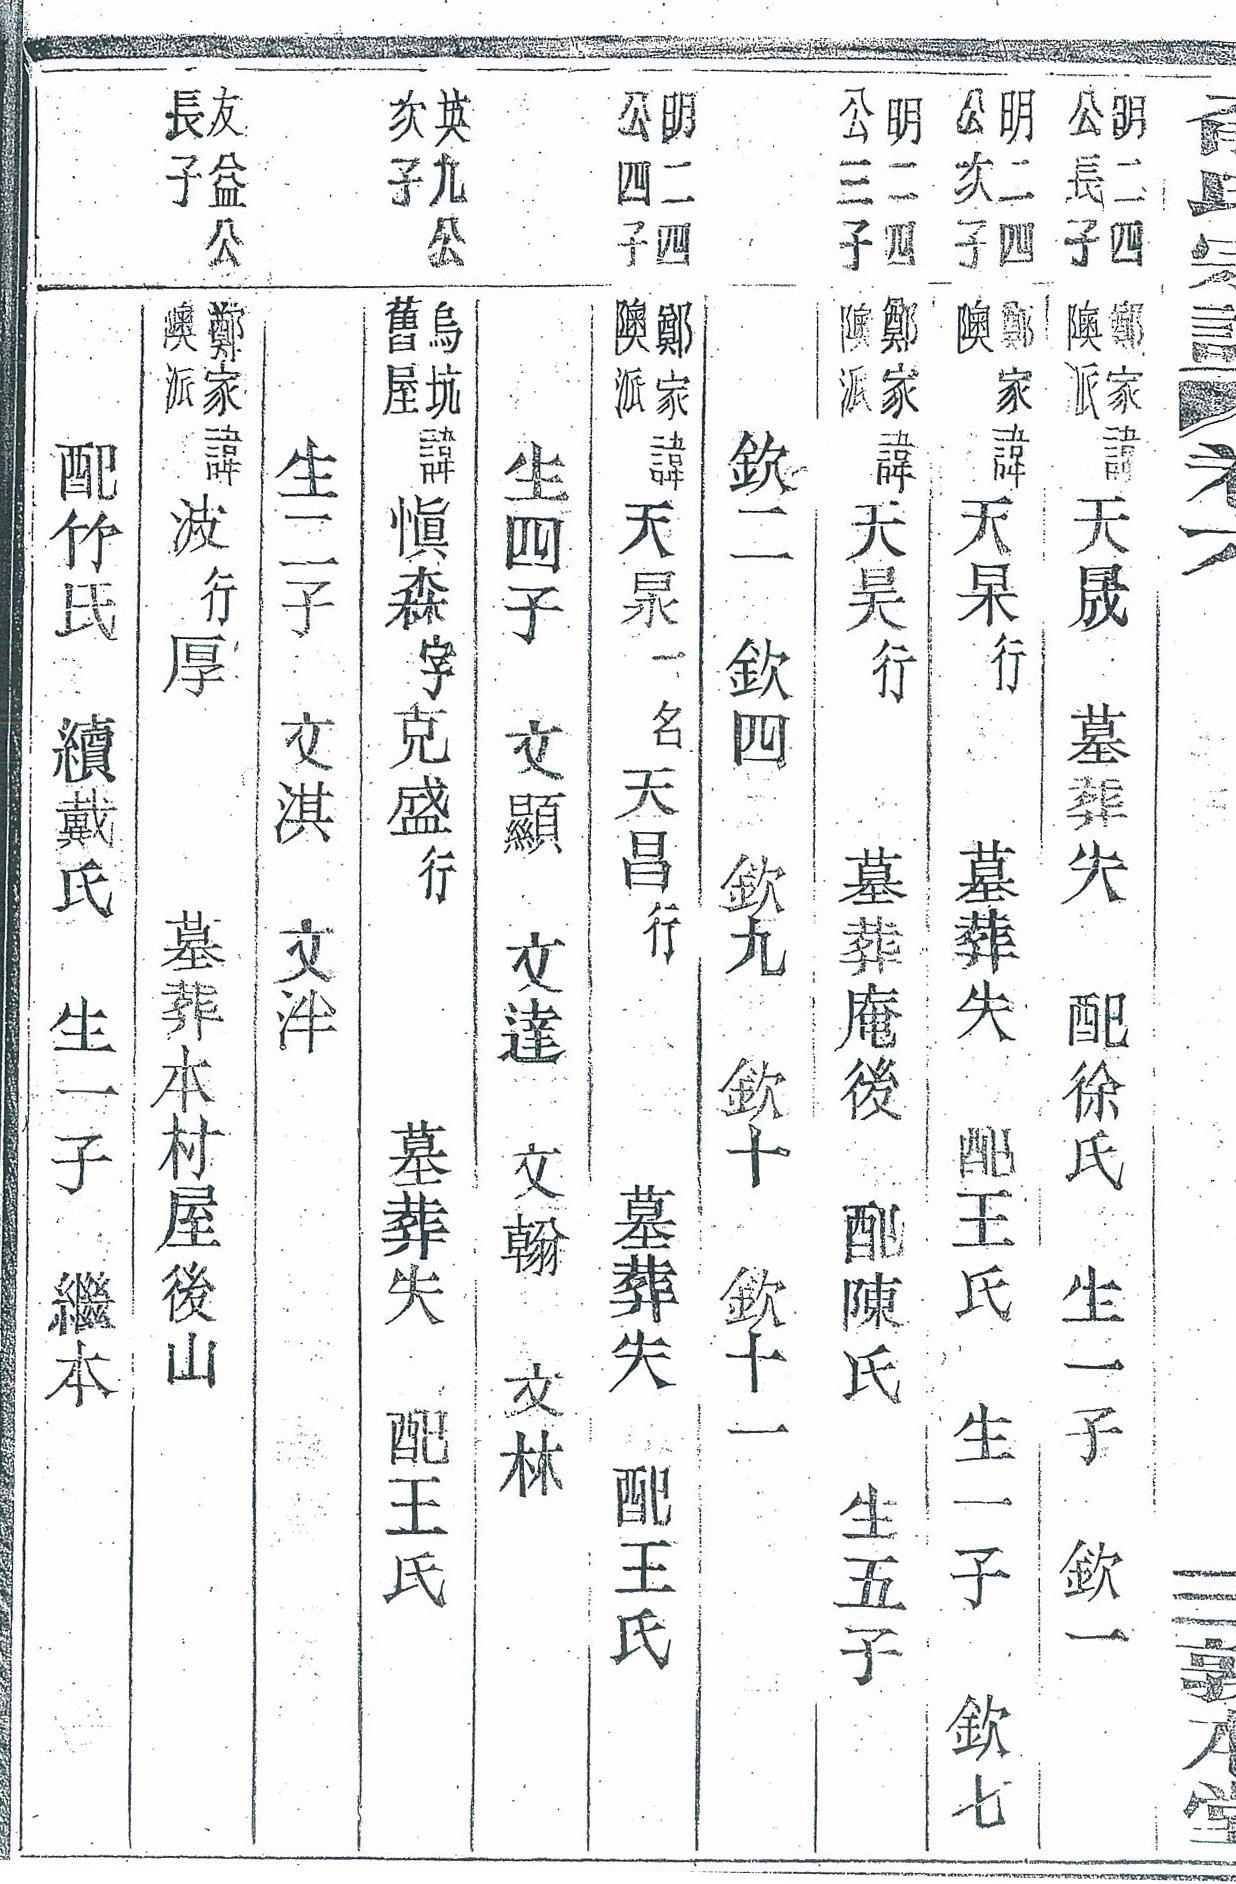 氏宗譜 卷六 三 敦本堂
明二四公長子 鄭家隩派 諱天晟 墓葬失 配徐氏 生一子 欽一
明二四公次子 鄭家隩 諱天杲行 墓葬失 配王氏 生一子 欽七
明二四公三子 鄭家隩派 諱天昊行 墓葬庵後 配陳氏 生五子
欽二 欽四 欽九 欽十 欽十一
明二四公四子 鄭家隩派 諱天泉一名天昌行 墓葬失 配王氏
生四子 文顯 文達 文翰 文林
英九公次子 烏坑舊屋 諱愼森字克盛行 墓葬失 配王氏
生二子 文淇 文泮
友益公長子 鄭家隩派 諱波行厚 墓葬本村屋後山
配竹氏 續戴氏 生一子 繼本